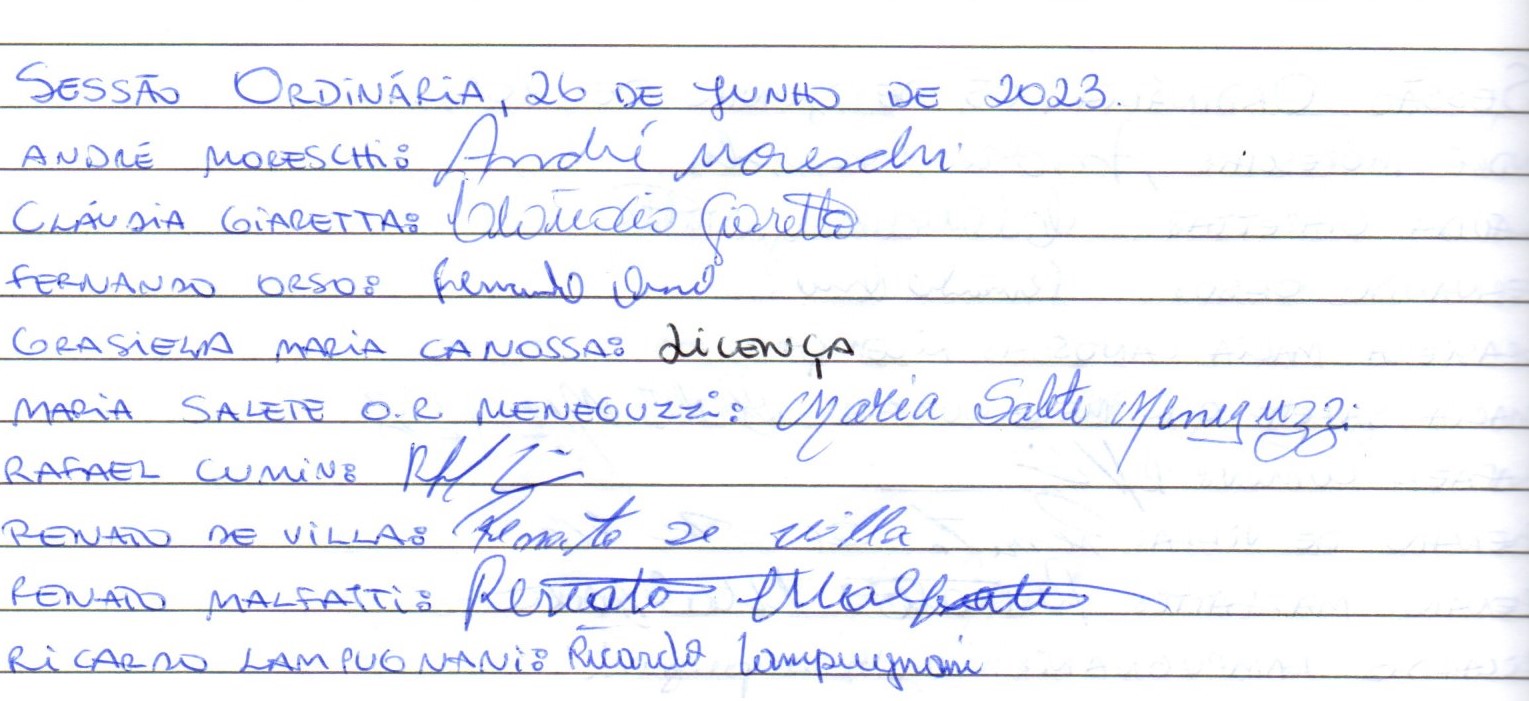 SESSÃO ORDINÁRIA, 26 DE JUNHO DE 2023.
ANDRÉ MORESCHI: André Moreschi
CLÁUDIA GIARETTA: Cláudia Giaretta
FERNANDO ORSO: Fernando Orso
GRASIELA MARIA CANOSSA: LICENÇA
MARIA SALETE O.R MENEGUZZI: Maria Salete Meneguzzi
RAFAEL CUMIN:
RENATO DE VILLA: Renato de villa
RENATO MALFATTI: Renato Malfatti
RICARDO LAMPUGNANI: Ricardo Lampugnani